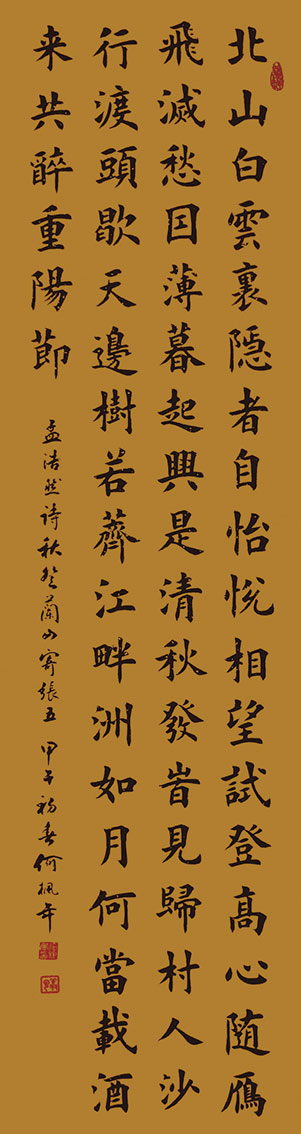 北山白雲裏隐者自怡悦相望試登高心随雁
飛滅愁因薄暮起興是清秋發旹見歸村人沙
行渡頭歇天邊樹若薺江畔洲如月何當載酒
来共醉重陽節
孟浩然诗秋登蘭山寄張五 甲午初春何楓年